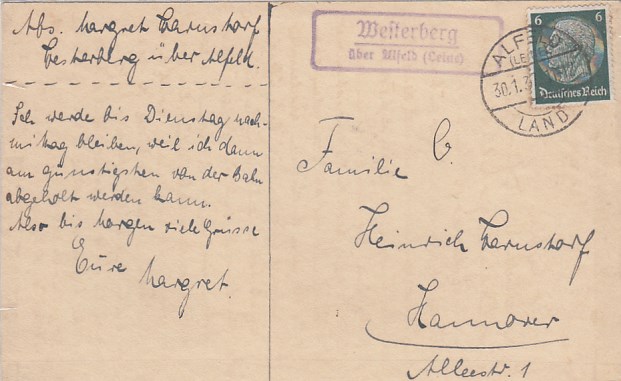 Abs. Margret Barnstorf
Westerberg über Alfeld.
Ich werde bis Dienstag nach-
mittag bleiben, weil ich dann
am günstigsten von der Bahn
abgeholt werden kann.
Also bis Morgen viele Grüsse
Eure Margret.
Westerberg
über Alfeld (Leine)
ALFELD
(LEINE)
30.1.3
LAND
6 6
Deutsches Reich
Familie
Heinrich Barnstorf
Hannover
Alleestr. 1